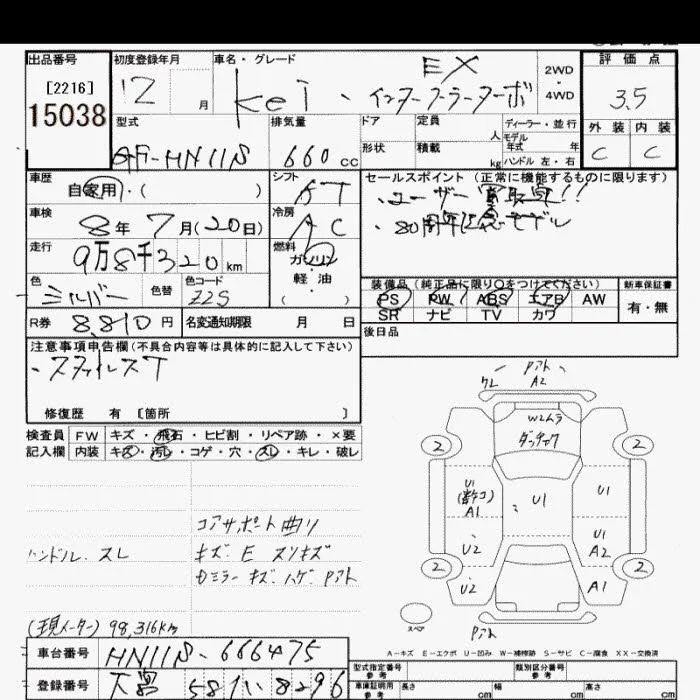 出品番号 初度登録年月 車名・グレード 評価点
[2216]
15038
12 月
Kei、 EX
インタークーラーターボ
2WD
・
4WD
3.5
外装 内装
C C
型式 排気量 ドア 定員 人 ディーラー・並行
GF-HN11S 660 cc 形状 積載 kg モデル年式 年
ハンドル 左・右
車歴 シフト セールスポイント (正常に機能するものに限ります)
自家用・( ) AT ・ユーザー買取車!!
車検 8年 7月(20日) 冷房 AC ・80周年記念モデル
走行 9万8千320km 燃料 ガソリン
軽油
( )
色 シルバー 色替 色コード Z2S
装備品 (純正品に限り○をつけてください) 新車保証書
PS PW ABS エアB AW 有・無
SR ナビ TV カワ
R券 8,810円 名変通知期限 月 日
後日品
注意事項申告欄 (不具合内容等は具体的に記入して下さい)
・スタッドレスT
修復歴 有 [箇所 ]
検査員 FW キズ・飛石・ヒビ割・リペア跡・×要
記入欄 内装 キズ・汚レ・コゲ・穴・スレ・キレ・破レ
コアサポート曲リ
ハンドル スレ キズ、E スリキズ
(現メーター) 98,316km
アト
クレ A2
W2ムラ
2 2
U1 A1
U1
U1
U2
U1
A2
2 2
U2
A1
スペア
アト
A-キズ E-エクボ U-凹み W-補修跡 S-サビ C-腐食 XX-交換済
車台番号 HN11S-666475
登録番号 大宮 581 い 8296
型式指定番号 参考 類別区分番号 参考
車庫証明用 参考 長さ cm 幅 cm 高さ cm